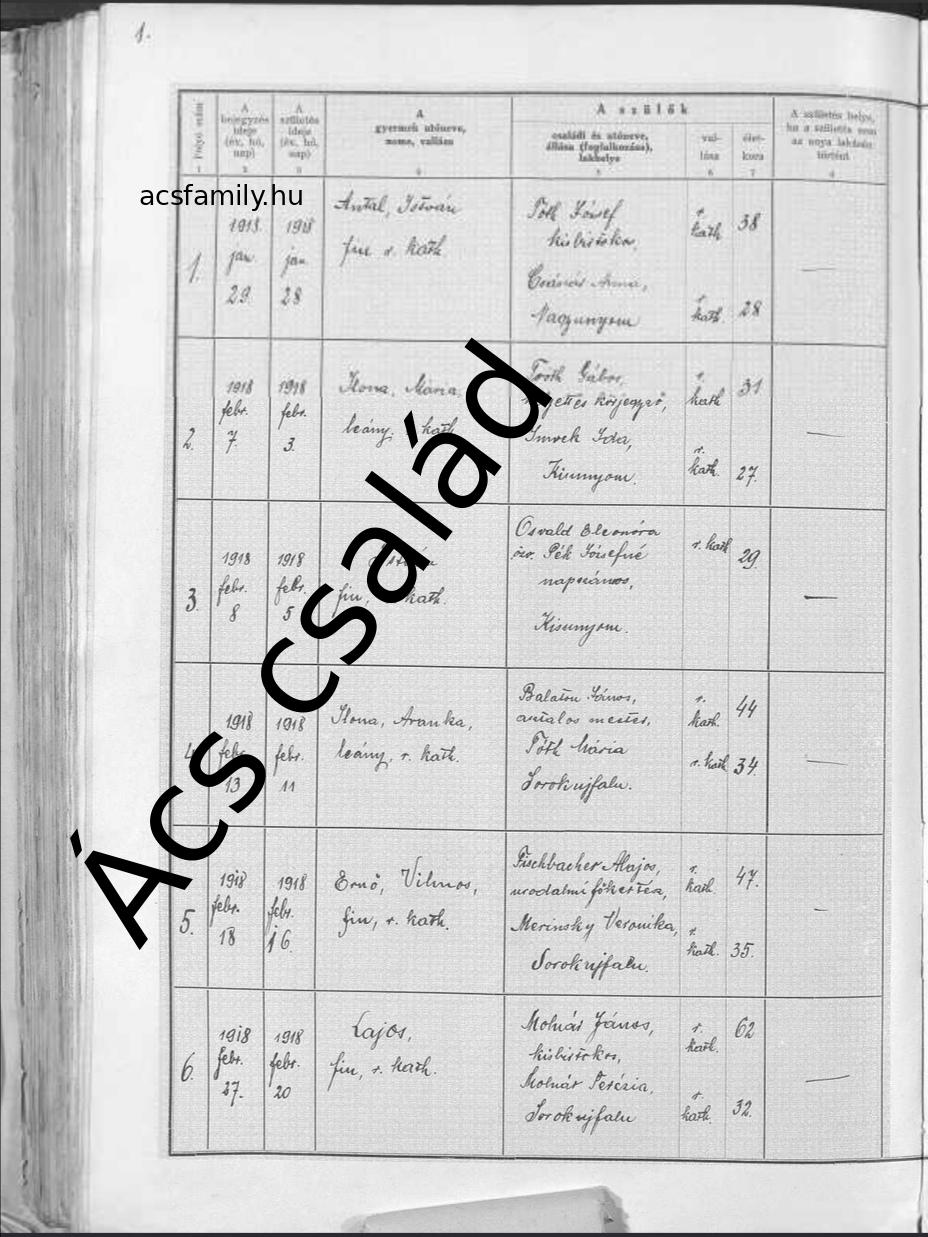 1.
A szülők
Folyó szám
A bejegyzés ideje (év, hó, nap)
A születés ideje (év, hó, nap)
A gyermek utóneve, neme, vallása
családi és utóneve, állása (foglalkozása), lakhelye
val-lása
élet-kora
A születés helye, ha a születés nem az anya lakásán történt
1 2 3 4 5 6 7
acsfamily.hu
Ács család
1.
1918 jan. 29.
1918 jan. 28
Antal, István
fiu r. kath.
Tóth József
kisbirtokos,
Császár Anna,
Nagyunyom
r. kath. 38
r. kath. 28
2.
1918 febr. 7.
1918 febr. 3.
Ilona, Mária,
leány, kath.
Tóth Gábor,
körjegyző,
Imrek Ida,
Kisunyom.
r. kath. 31
r. kath. 27.
3.
1918 febr. 8
1918 febr. 5
fiu, kath.
Osvald Eleonóra
özv. Pék Józsefné
napszámos,
Kisunyom.
r. kath. 29.
1918 febr. 13
1918 febr. 11
Ilona, Aranka,
leány, r. kath.
Balaton János,
asztalos mester,
Tóth Mária
Sorokujfalu.
r. kath. 44
r. kath. 34.
5.
1918 febr. 18
1918 febr. 16.
Ernő, Vilmos,
fiu, r. kath.
Fischbacher Alajos,
uradalmi főkertész,
Merinsky Veronika,
Sorokujfalu.
r. kath. 47.
r. kath. 35.
6.
1918 febr. 27.
1918 febr. 20
Lajos,
fiu, r. kath.
Molnár János,
kisbirtokos,
Molnár Terézia,
Sorokujfalu
r. kath. 62
r. kath. 32.